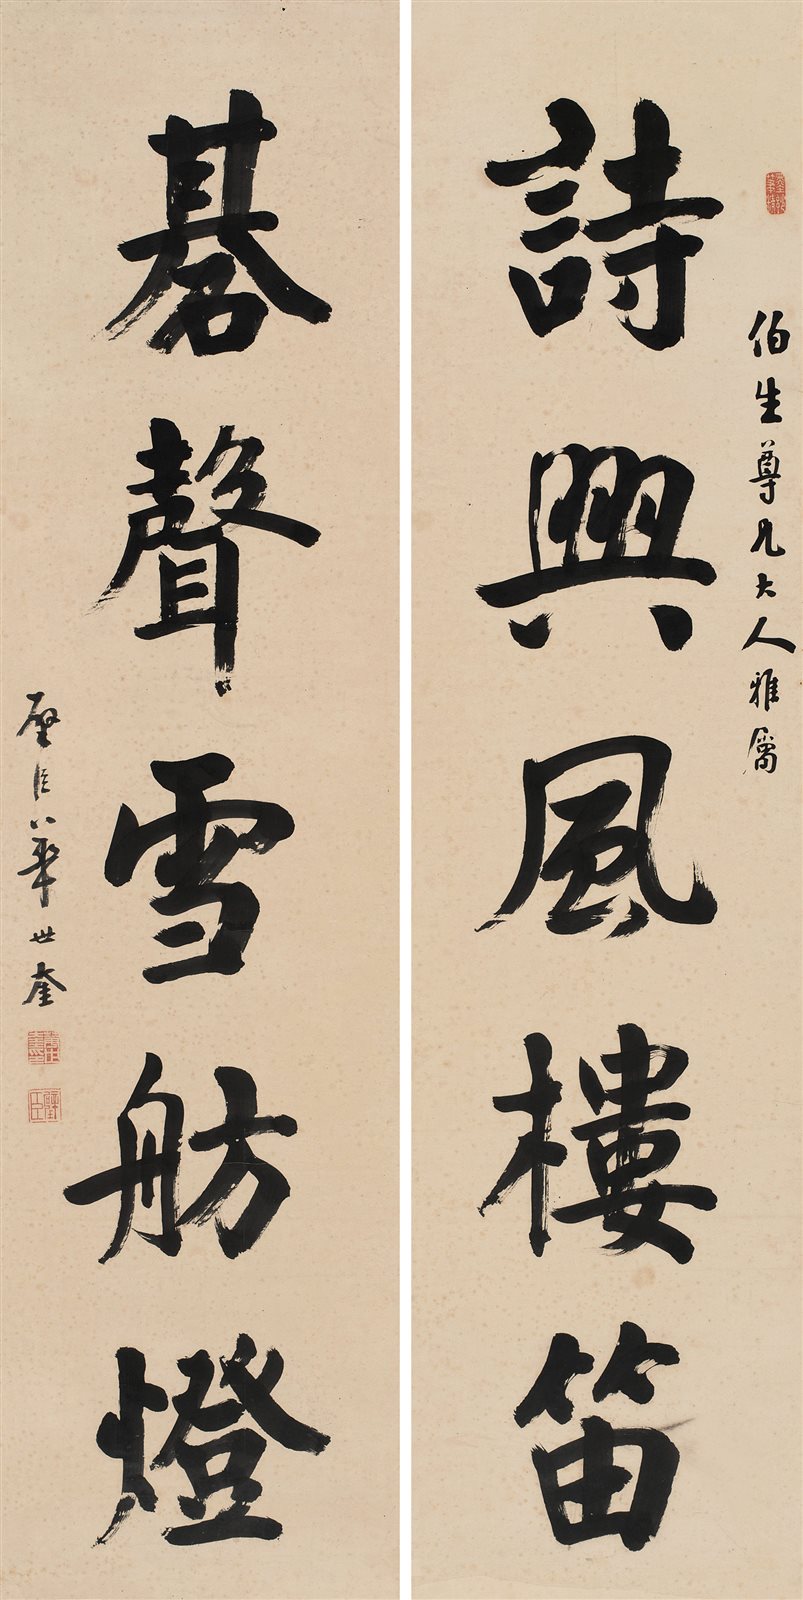 詩興風樓笛
伯生尊兄大人雅屬
碁聲雪舫燈
璧臣華世奎